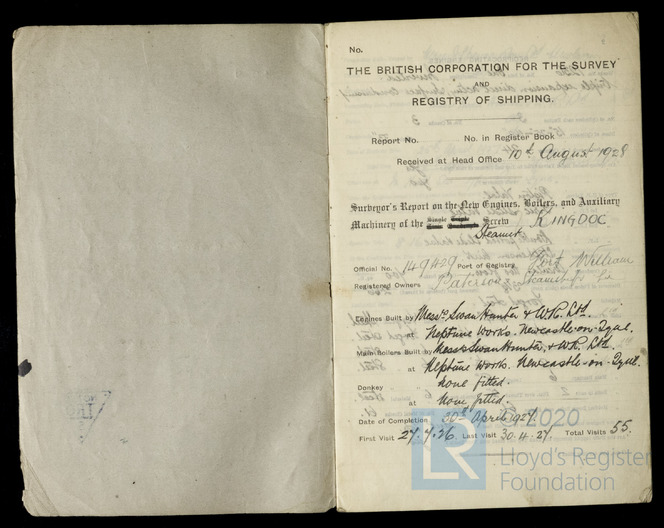 No.
THE BRITISH CORPORATION FOR THE SURVEY
AND
REGISTRY OF SHIPPING.
Report No. No. in Register Book
Received at Head Office 10th August 1928
Surveyor's Report on the New Engines, Boilers, and Auxiliary
Machinery of the Single Screw KINGDOC
Steamer
Official No. 149429 Port of Registry Fort William
Registered Owners Paterson Steamships Ld
Engines Built by Messrs Swan Hunter & W.R. Ltd.
in Neptune Works. Newcastle-on-Tyne.
Main Boilers Built by Messrs Swan Hunter, & W.R. Ltd.
at Neptune Works. Newcastle-on-Tyne.
Donkey " none fitted.
at None fitted.
Date of Completion 30th April 1927.
First Visit 27.7.26. Last Visit 30.4.27. Total Visits 55.
© 2020
LR
Lloyd's Register
Foundation